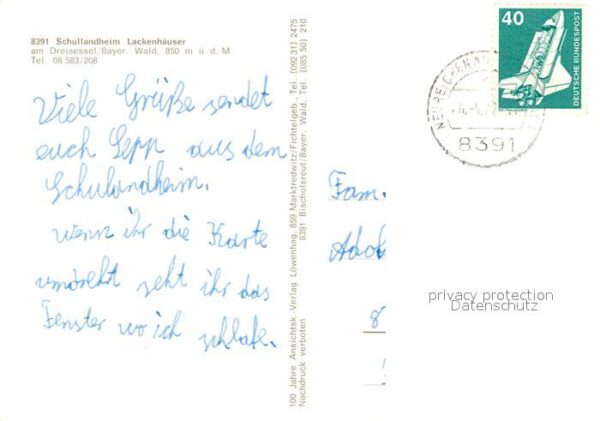 8391 Schullandheim Lackenhäuser
am Dreisessel/Bayer. Wald, 850 m ü. d. M.
Tel. 08 583/208
Viele Grüße sendet
euch Sepp aus dem
Schulandheim.
wenn ihr die Karte
umdreht seht ihr das
Fenster wo ich schlafe.
100 Jahre Ansichtsk.-Verlag Löwenhag, 859 Marktredwitz/Fichtelgeb., Tel. (09231) 2475
Nachdruck verboten 8391 Bischofsreut/Bayer. Wald, Tel. (085 50) 210
40
DEUTSCHE BUNDESPOST
8391
Fam.
Adol
8
privacy protection
Datenschutz